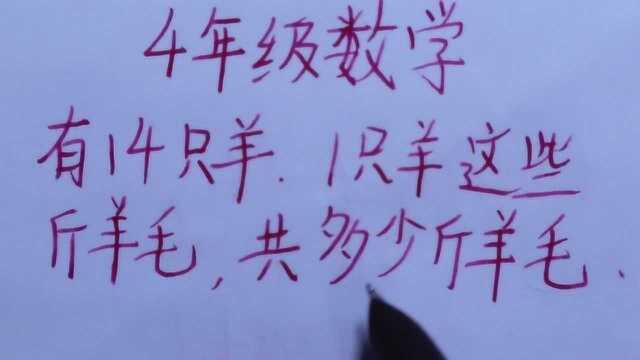 4年级数学
有14只羊.1只羊这些
斤羊毛,共多少斤羊毛.